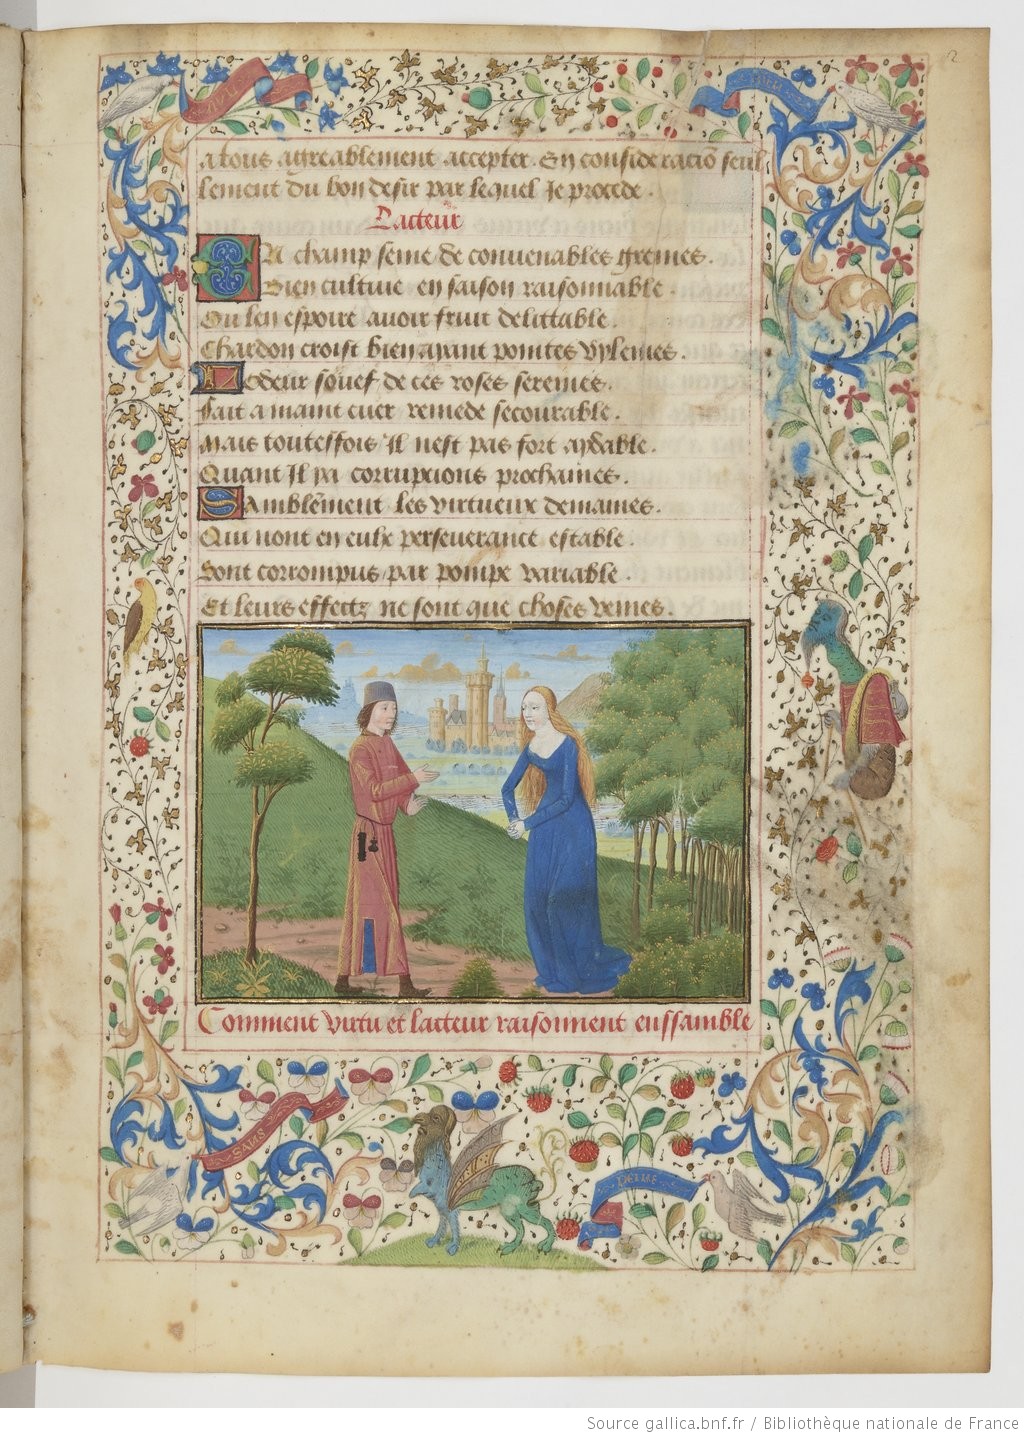 NUL
BIEN
2
a tous agreablement accepter. En consideracio seul
lement du bon desir par lequel Je procede.
Lacteur
En champ seme de convenables grenes.
Bien cultive en saison raisonnable.
Ou len espoire avoir fruit delittable.
Chardon croist bien ayant pointes vylenes.
Lodeur souef de ces roses serenes.
Fait a maint cuer remede secourable.
Mais touteffois Il nest pas fort aydable.
Quant Il ya corrupcions prochaines.
Samblement les virtueux demaines.
Qui nont en eulx perseverance estable.
Sont corrompus par pompe variable.
Et leurs effectz ne sont que choses venes.
Comment virtu et lacteur raisonnent enssamble
SANS
PEINE
Source gallica.bnf.fr / Bibliothèque nationale de France